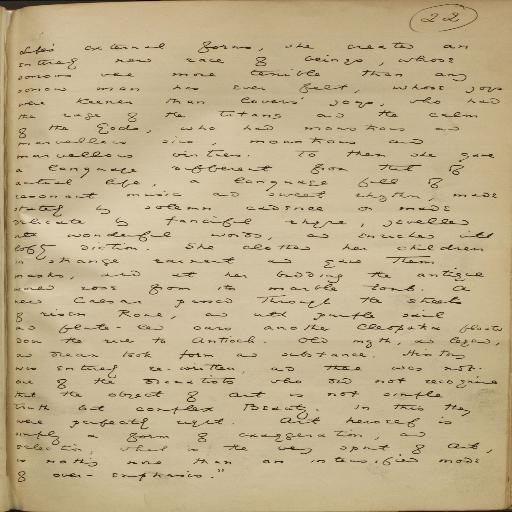 22
life's external forms, she created an
entirely new race of beings, whose
sorrows were more terrible than any
sorrow man has ever felt, whose joys
were keener than lovers' joys, who had
the rage of the Titans and the calm
of the Gods, who had monstrous and
marvellous sins, monstrous and
marvellous virtues. To them she gave
a language different from that of
actual life, a language full of
resonant music and sweet rhythm, made
stately by solemn cadence or made
delicate by fanciful rhyme, jewelled
with wonderful words, and enriched with
lofty diction. She clothed her children
in strange raiment and gave them
masks, and at her bidding the antique
world rose from its marble tomb. A
new Caesar passed through the streets
of risen Rome, and with purple sail
and flute-led oars another Cleopatra floated
down the river to Antioch. Old myth, and legend,
and dream took form and substance. History
was entirely re-written, and there was not
one of the Dramatists who did not recognise
that the object of Art is not simple
truth but complex Beauty. In this they
were perfectly right. Art herself is
simply a form of exaggeration, and
selection, which is the very spirit of Art,
is nothing more than an intensified mode
of over-emphasis."